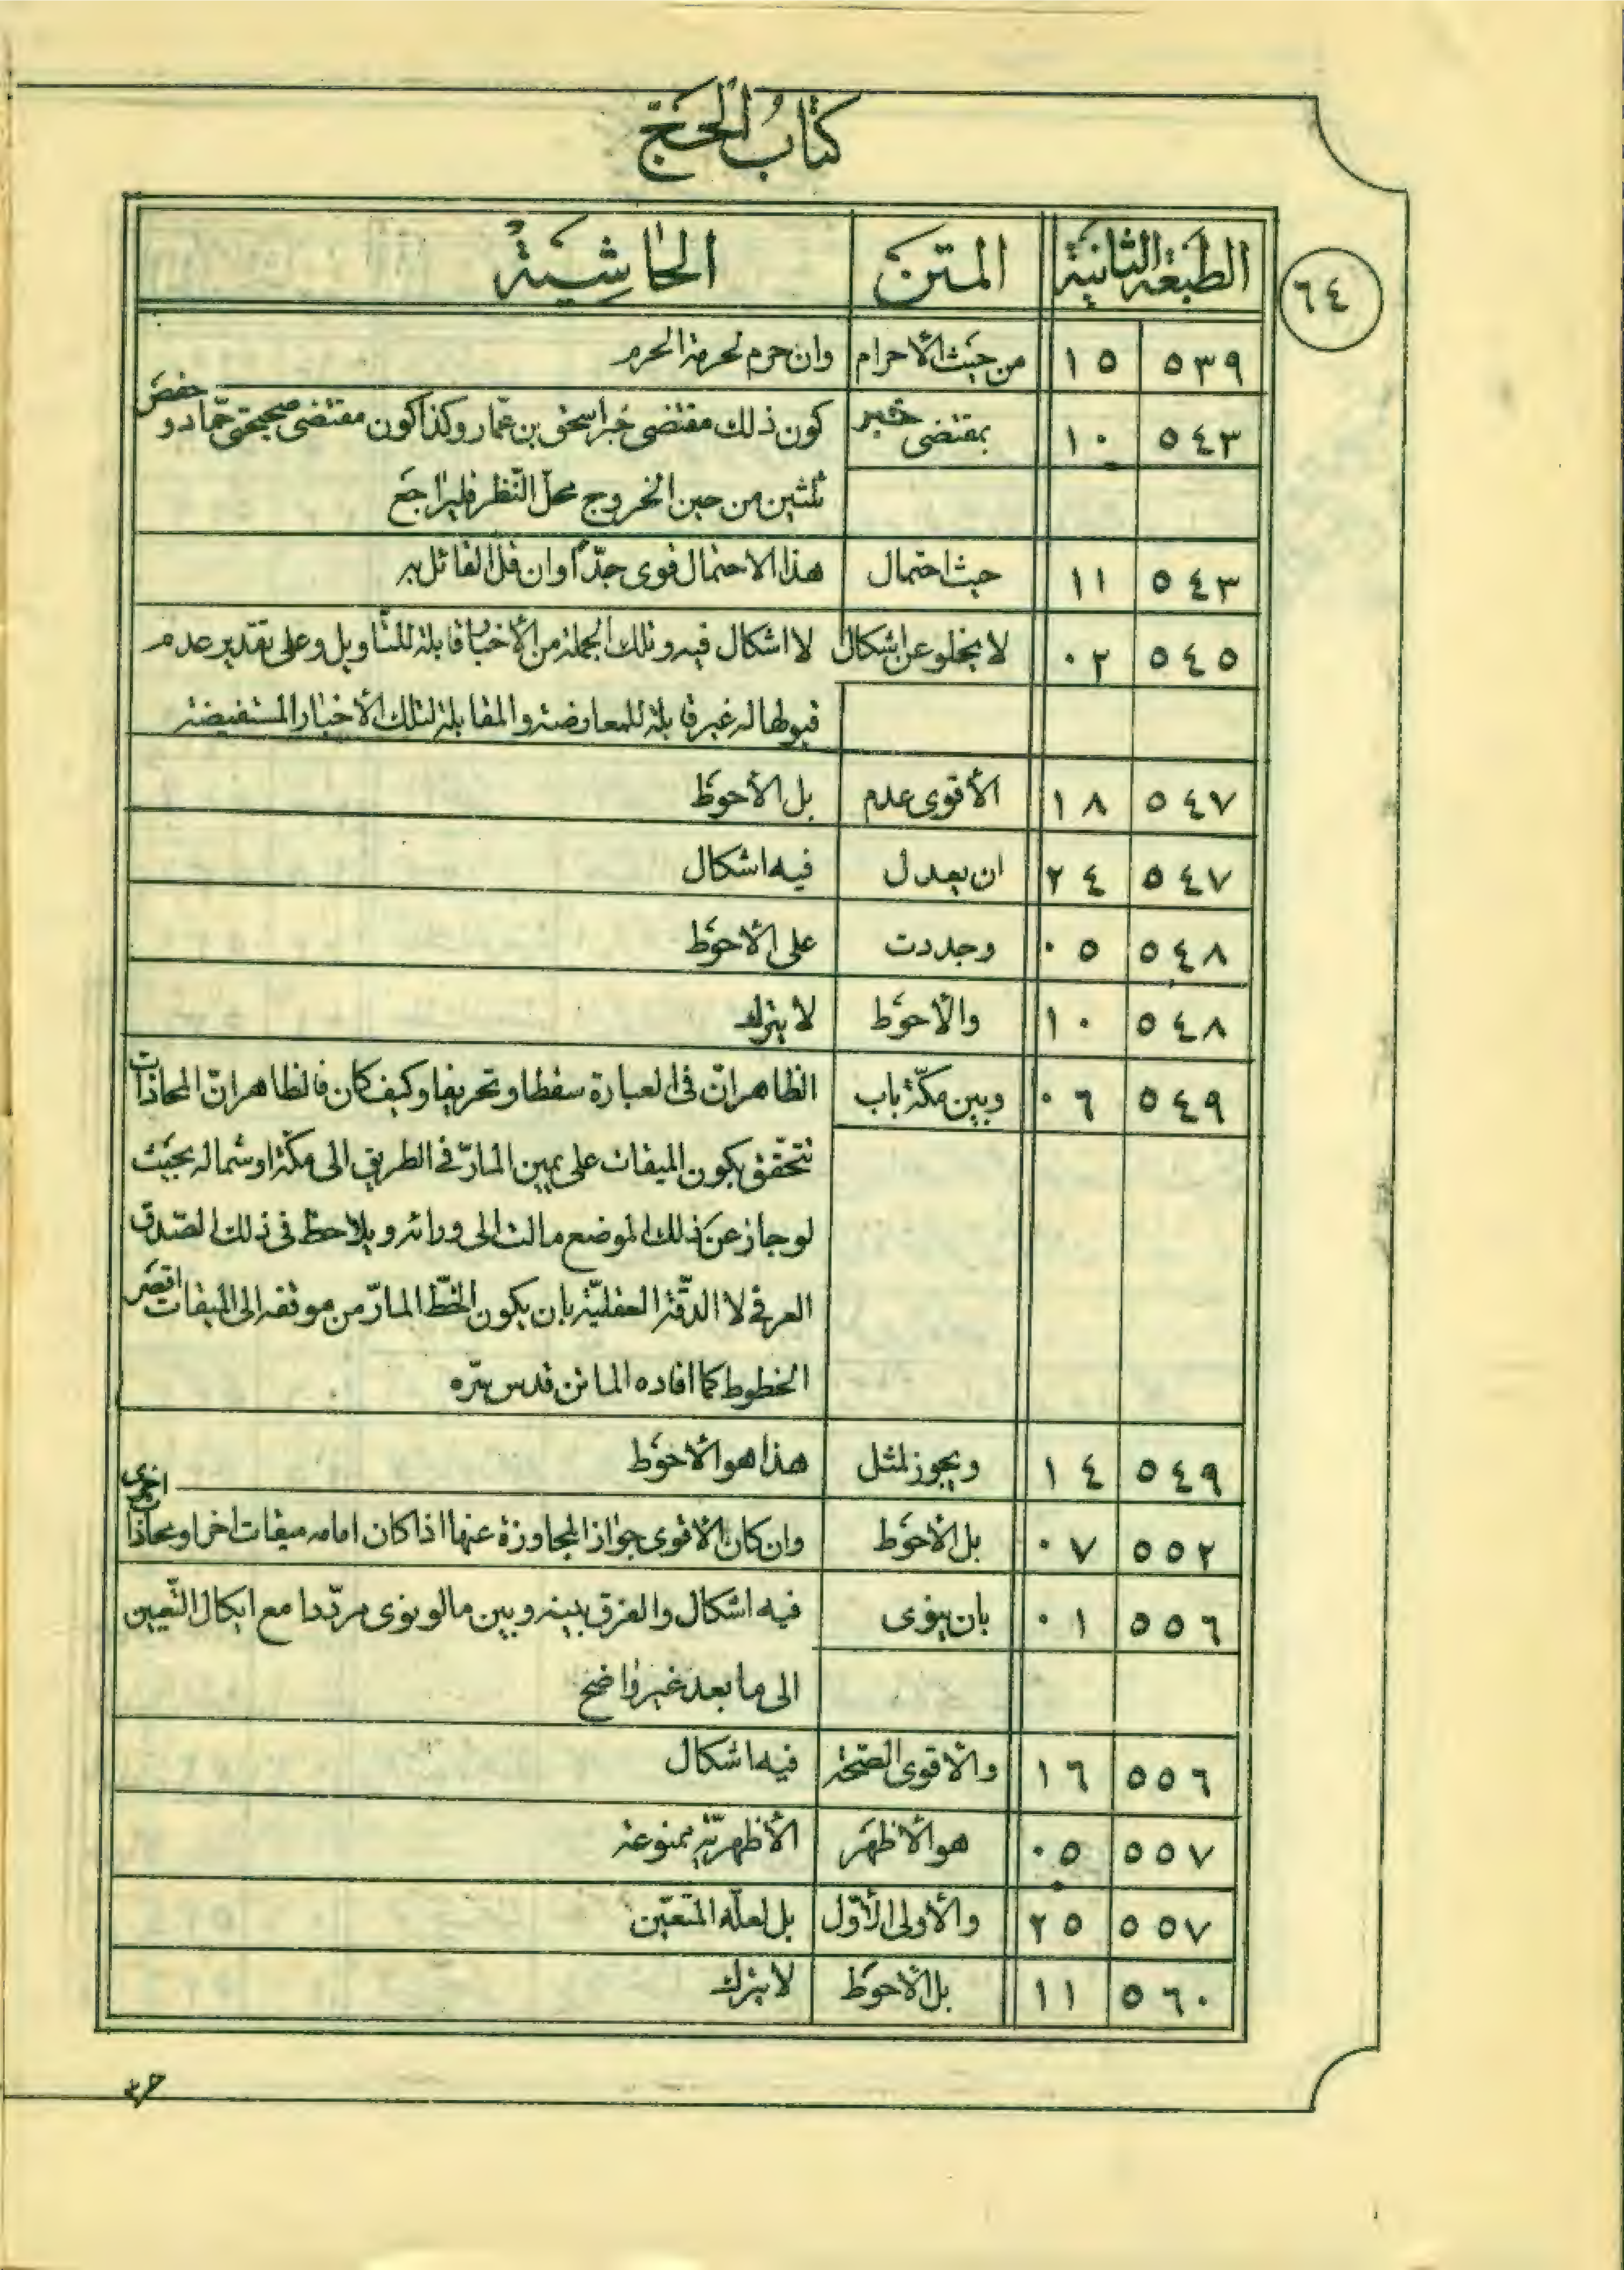 كتاب الحج
الطبعة الثانية المتن الحاشية
٦٤
٥٣٩ ١٥ من حيث الأحرام وان حرم لحرمة الحرم
٥٤٣ ١٠ بمقتضى خبر كون ذلك مقتضى خبر اسحق بن عمار وكذا كون مقتضى صحيحتى حمّاد و حفص
ثلثين من حين الخروج محلّ النّظر فليراجع
٥٤٣ ١١ حيث احتمال هذا الاحتمال قوى جدّاً وان قلّ القائل به
٥٤٥ ٠٢ لا يخلو عن اشكال لا اشكال فيه وتلك الجملة من الأخبار قابلة للتأويل وعلى تقدير عدم
قبولها له غير قابلة للمعارضة والمقابلة لتلك الأخبار المستفيضة
٥٤٧ ١٨ الأقوى عدم بل الأحوط
٥٤٧ ٢٤ ان يعدل فيه اشكال
٥٤٨ ٠٥ وجددت على الأحوط
٥٤٨ ١٠ والأحوط لا يترك
٥٤٩ ٠٦ وبين مكّة باب الظاهر انّ فى العبارة سقطا وتحريفا وكيف كان فالظاهر انّ المحاذات
تتحقّق بكون الميقات على يمين المارّ فى الطريق الى مكّة او شماله بحيث
لو جاز عن ذلك الموضع مالت الى ورائه ويلاحظ فى ذلك الصّدق
العرفى لا الدقّة العقليّة بان يكون الخطّ المارّ من موقفه الى الميقات اقصر
الخطوط كما افاده الماتن قدس سرّه
٥٤٩ ١٤ ويجوز لمثل هذا هو الأحوط
٥٥٢ ٠٧ بل الأحوط وان كان الأقوى جواز المجاوزة عنها اذا كان امامه ميقات اخر او محاذاة اخرى
٥٥٦ ٠١ بان ينوى فيه اشكال والفرق بينه وبين ما لو نوى مردّدا مع ايكال التّعيين
الى ما بعد غير واضح
٥٥٦ ١٦ والأقوى الصّحة فيه اشكال
٥٥٧ ٠٥ هو الأظهر الأظهريّة ممنوعة
٥٥٧ ٢٥ والأولى الأوّل بل لعلّه المتعيّن
٥٦٠ ١١ بل الأحوط لا يترك